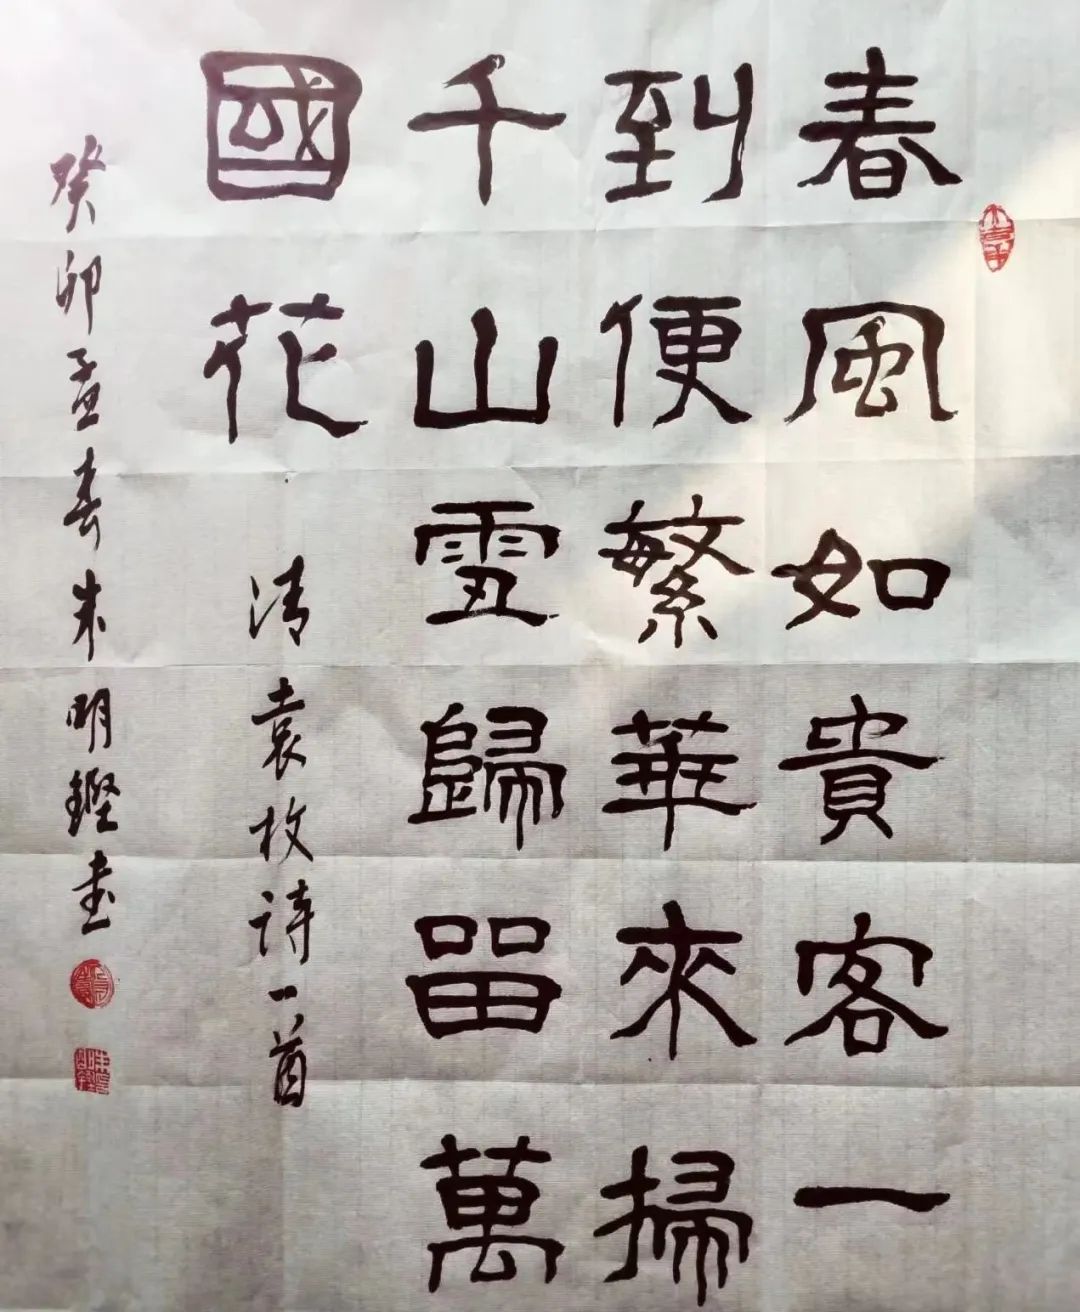 春風如貴客一
到便繁華來掃
千山雪歸留萬
國花
清袁枚詩一首
癸卯孟春朱明鏗书